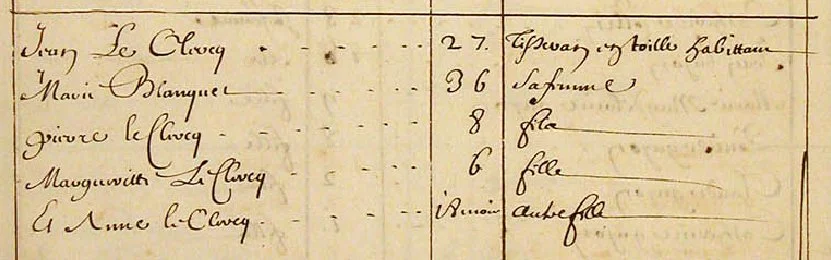 Jean Le Clercq 27. Tisseran en toille habittant
Marie Blanquet 36 sa femme
pierre le Clercq 8 fils
Margueritte Le Clercq 6 fille
Et Anne le Clercq 18 mois autre fille